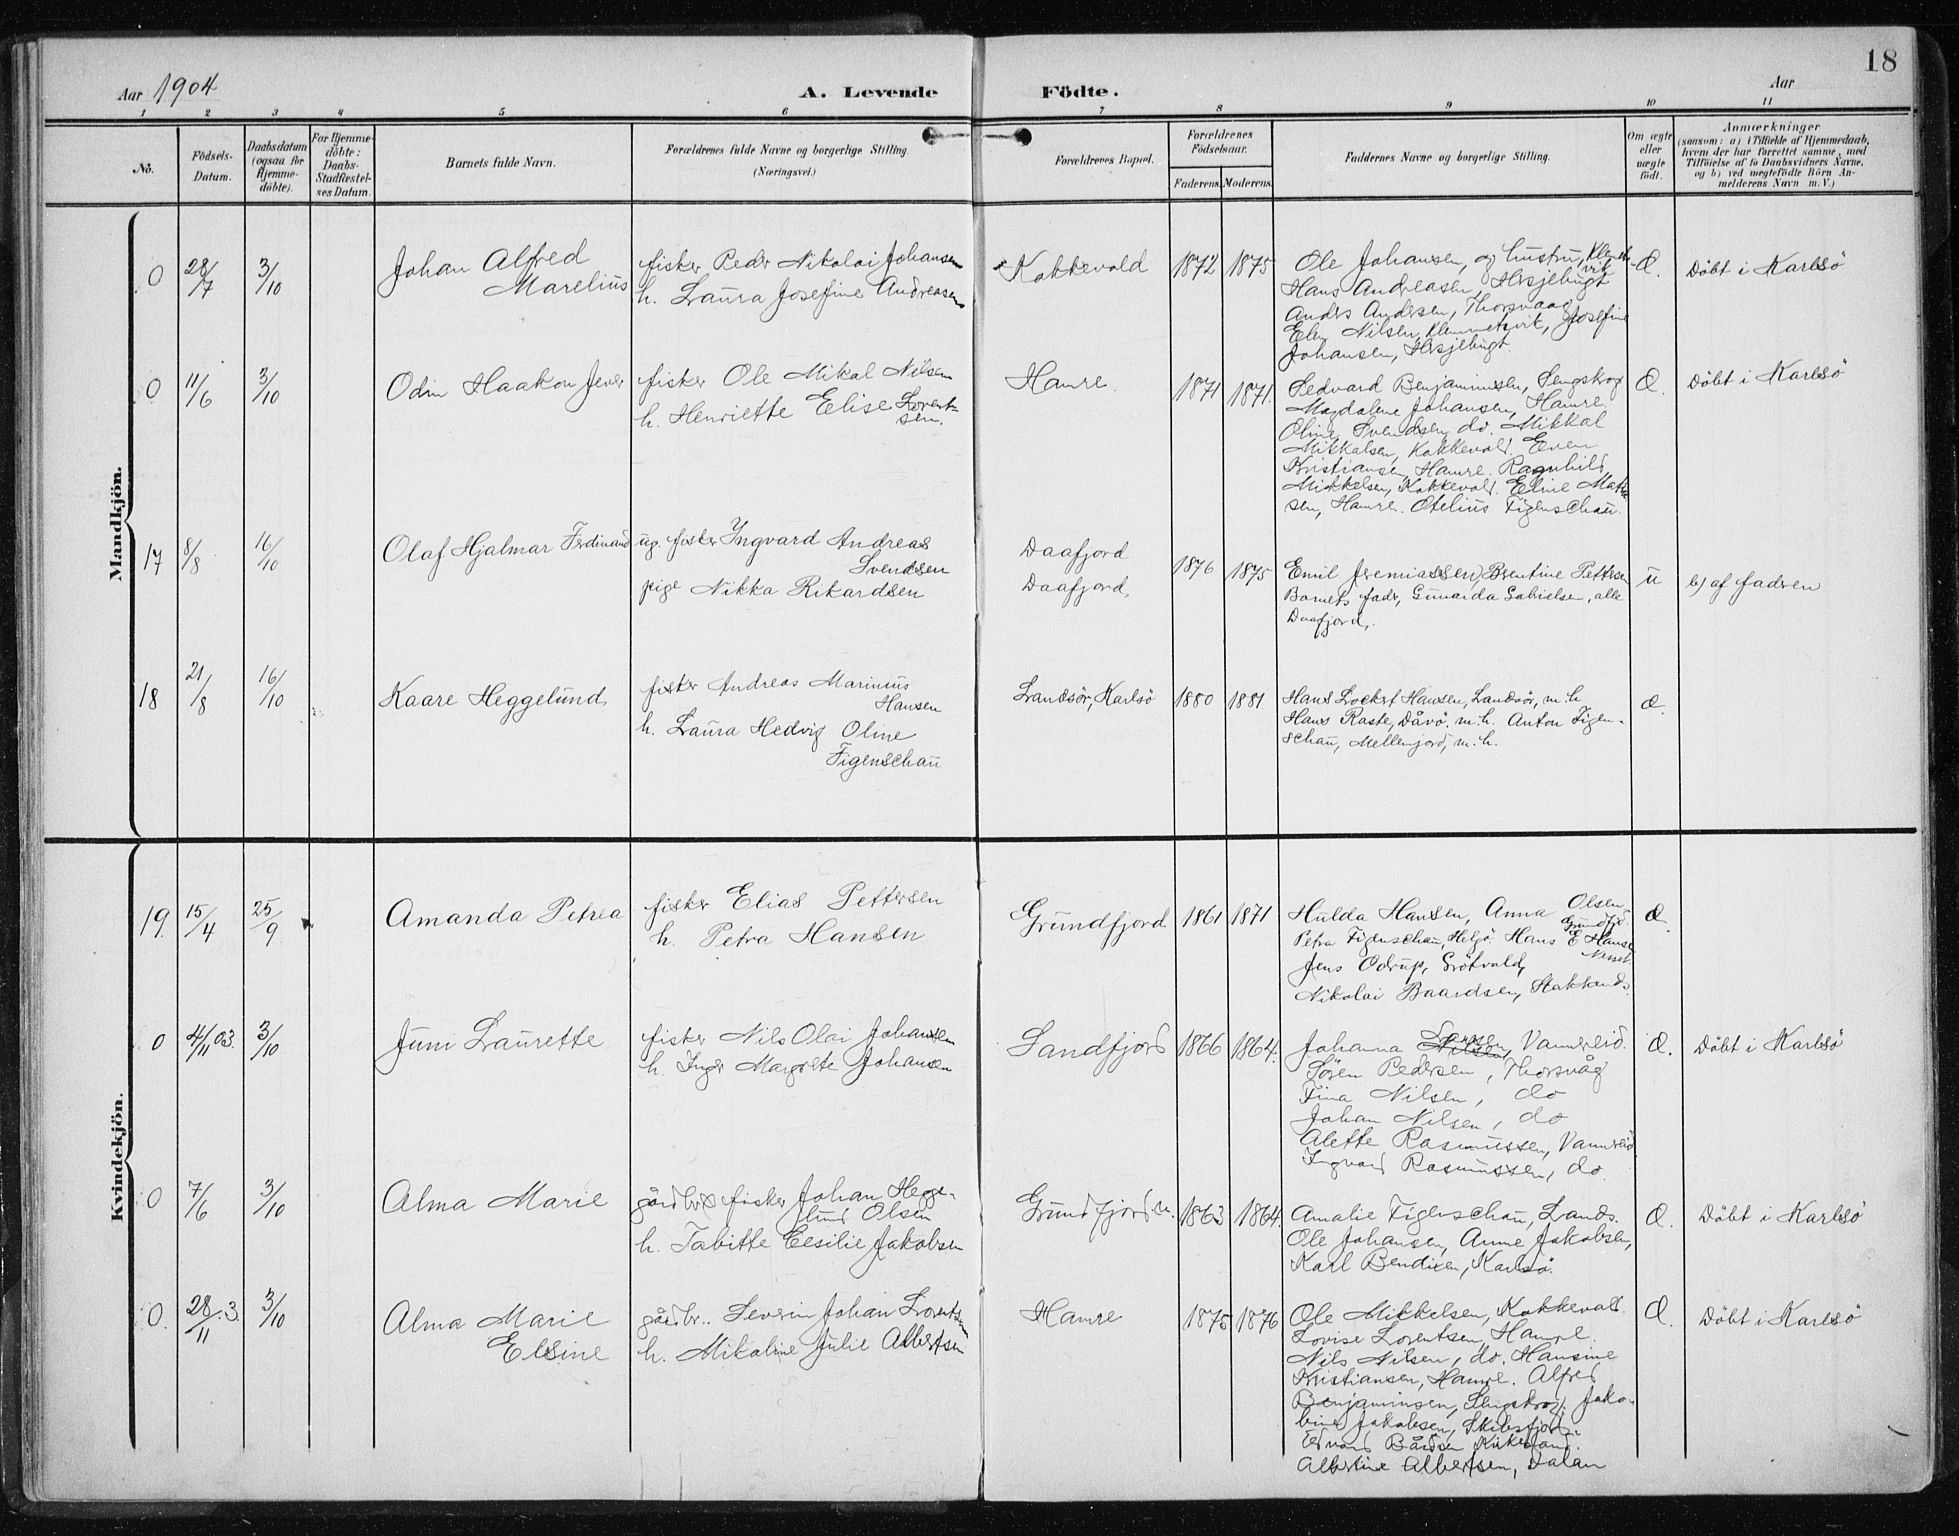 18
Aar 1904
A. Levende Födte.
Aar
1 2 3 4 5 6 7 8 9 10 11
No.
Födsels-
Datum.
Daabsdatum
(ogsaa for
Hjemme-
döbte).
For Hjemme-
döbte:
Daabs-
Stadfæstel-
ses Datum.
Barnets fulde Navn.
Forældrenes fulde Navne og borgerlige Stilling.
(Næringsvei.)
Forældrenes Bopæl.
Forældrenes
Födselsaar.
Faderens. Moderens.
Faddernes Navne og borgerlige Stilling.
Om ægte
eller
uægte
födt.
Anmærkninger
(saasom: a) i Tilfælde af Hjemmedaab,
hvem der har forrettet samme, med
Tilföielse af to Daabsvidners Navne,
og b) ved uægtefödte Börn An-
melderens Navn m. V.)
Mandkjön.
0 28/7 3/10
Johan Alfred
Marelius
fisker Peder Nikolai Johansen
h. Laura Josefine Andreasen
Kokkevold
1872 1875
Ole Johansen, og hustru, Klemet-
vik
Hans Andreasen, Hesjebugt
Anders Andersen, Thorsvaag
Elen Nilsen, Klemmetsvik, Josefine
Johansen, Hesjebugt.
Æ.
Döbt i Karlsö
0 11/6 3/10
Odin Haakon Jever
fisker Ole Mikal Nilsen
h. Henriette Elise Lorent-
sen.
Hamre.
1871 1871.
Sedvard Benjaminsen, Sengskrog
Magdalene Johansen, Hamre.
Oline Svendsen do. Mikkal
Mikkalsen, Kokkevold. Even
Kristiansen, Hamre. Ragnhild
Mikkelsen, Kokkevold. Eline
sen, Hamre. Otelius Figenschau.
Æ.
Döbt i Karlsö
17 8/8 16/10
Olaf Hjalmar Ferdinand
ug. fisker Yngvard Andreas
Svendsen
pige Nikka Rikardsen
Daafjord
Daafjord,
1876 1875
Emil Jeremiassen, Brentine Pettersen
Barnets fader, Gunarda Gabrielsen, alle
Daafjord.
u
b) af faderen
18 21/8 16/10
Kaare Heggelund
fisker Andreas Marinius
Hansen
h. Laura Hedvig Oline
Figenschau
Landsör, Karlsö
1880 1881
Hans Lockert Hansen, Landsör, m.h.
Hans Raste, Dåvö. m.h. Anton Figen-
schau, Mellemjord, m.h.
æ.
Kvindekjön.
19. 15/4 25/9
Amanda Petrea
fisker Elias Pettersen
h. Petra Hansen
Grundfjord
1861 1871
Hulda Hansen, Anna Olsen
Grundfjd.
Petra Figenschau, Helgö. Hans E Hansen
Jens Odrup, Grötvold,
Nikolai Baardsen, Stakkends.
æ.
0 4/11 03. 3/10
Juni Laurette
fisker Nils Olai Johansen
h. Inger Margrete Johansen
Sandfjord
1866 1864.
Johanna Larsen, Vannreid.
Nilsen
Sören Pedersen, Thorsvåg
Fina Nilsen, do
Johan Nilsen, do
Alette Rasmussen, Vannreid
Ingvard Rasmussen, do.
Æ.
Döbt i Karlsö
0 7/6 3/10
Alma Marie
gårdbr & fisker Johan Hegge-
lund Olsen
h. Tabitte Cesilie Jakobsen
Grundfjord n.
1863 1864.
Amalie Figenschau, Lands.
Ole Johansen, Anne Jakobsen,
Karl Bendixen, Karlsö.
Æ.
Döbt i Karlsö
0. 28/11.3 3/10
Alma Marie
Elsine
gårdbr. Severin Johan Lorentsen
h. Mikaline Julie Albertsen
Hamre
1875 1876
Ole Mikkelsen, Kokkevold.
Lovise Lorentsen, Hamre.
Nils Nilsen, do. Hansine
Kristiansen, Hamre. Alfred
Benjaminsen, Sengskrog, Jako-
bine Jakobsen, Skibsfjord.
Edvard Bårdsen Kirkeland.
Albertine Albertsen, Dalan
Æ.
Döbt i Karlsö